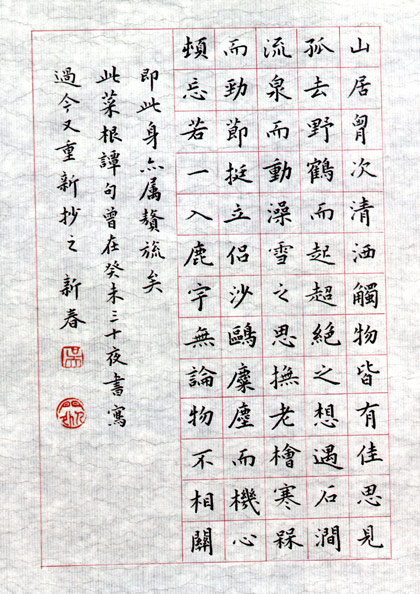 山居胷次清洒觸物皆有佳思見
孤去野鶴而起超絕之想遇石澗
流泉而動澡雪之思撫老檜寒槑
而勁節挺立侣沙鷗麋麈而機心
頓忘若一入鹿宇無論物不相關
即此身亦属贅旒矣
此菜根譚句曾在癸未三十夜書寫
過今又重新抄之 新春